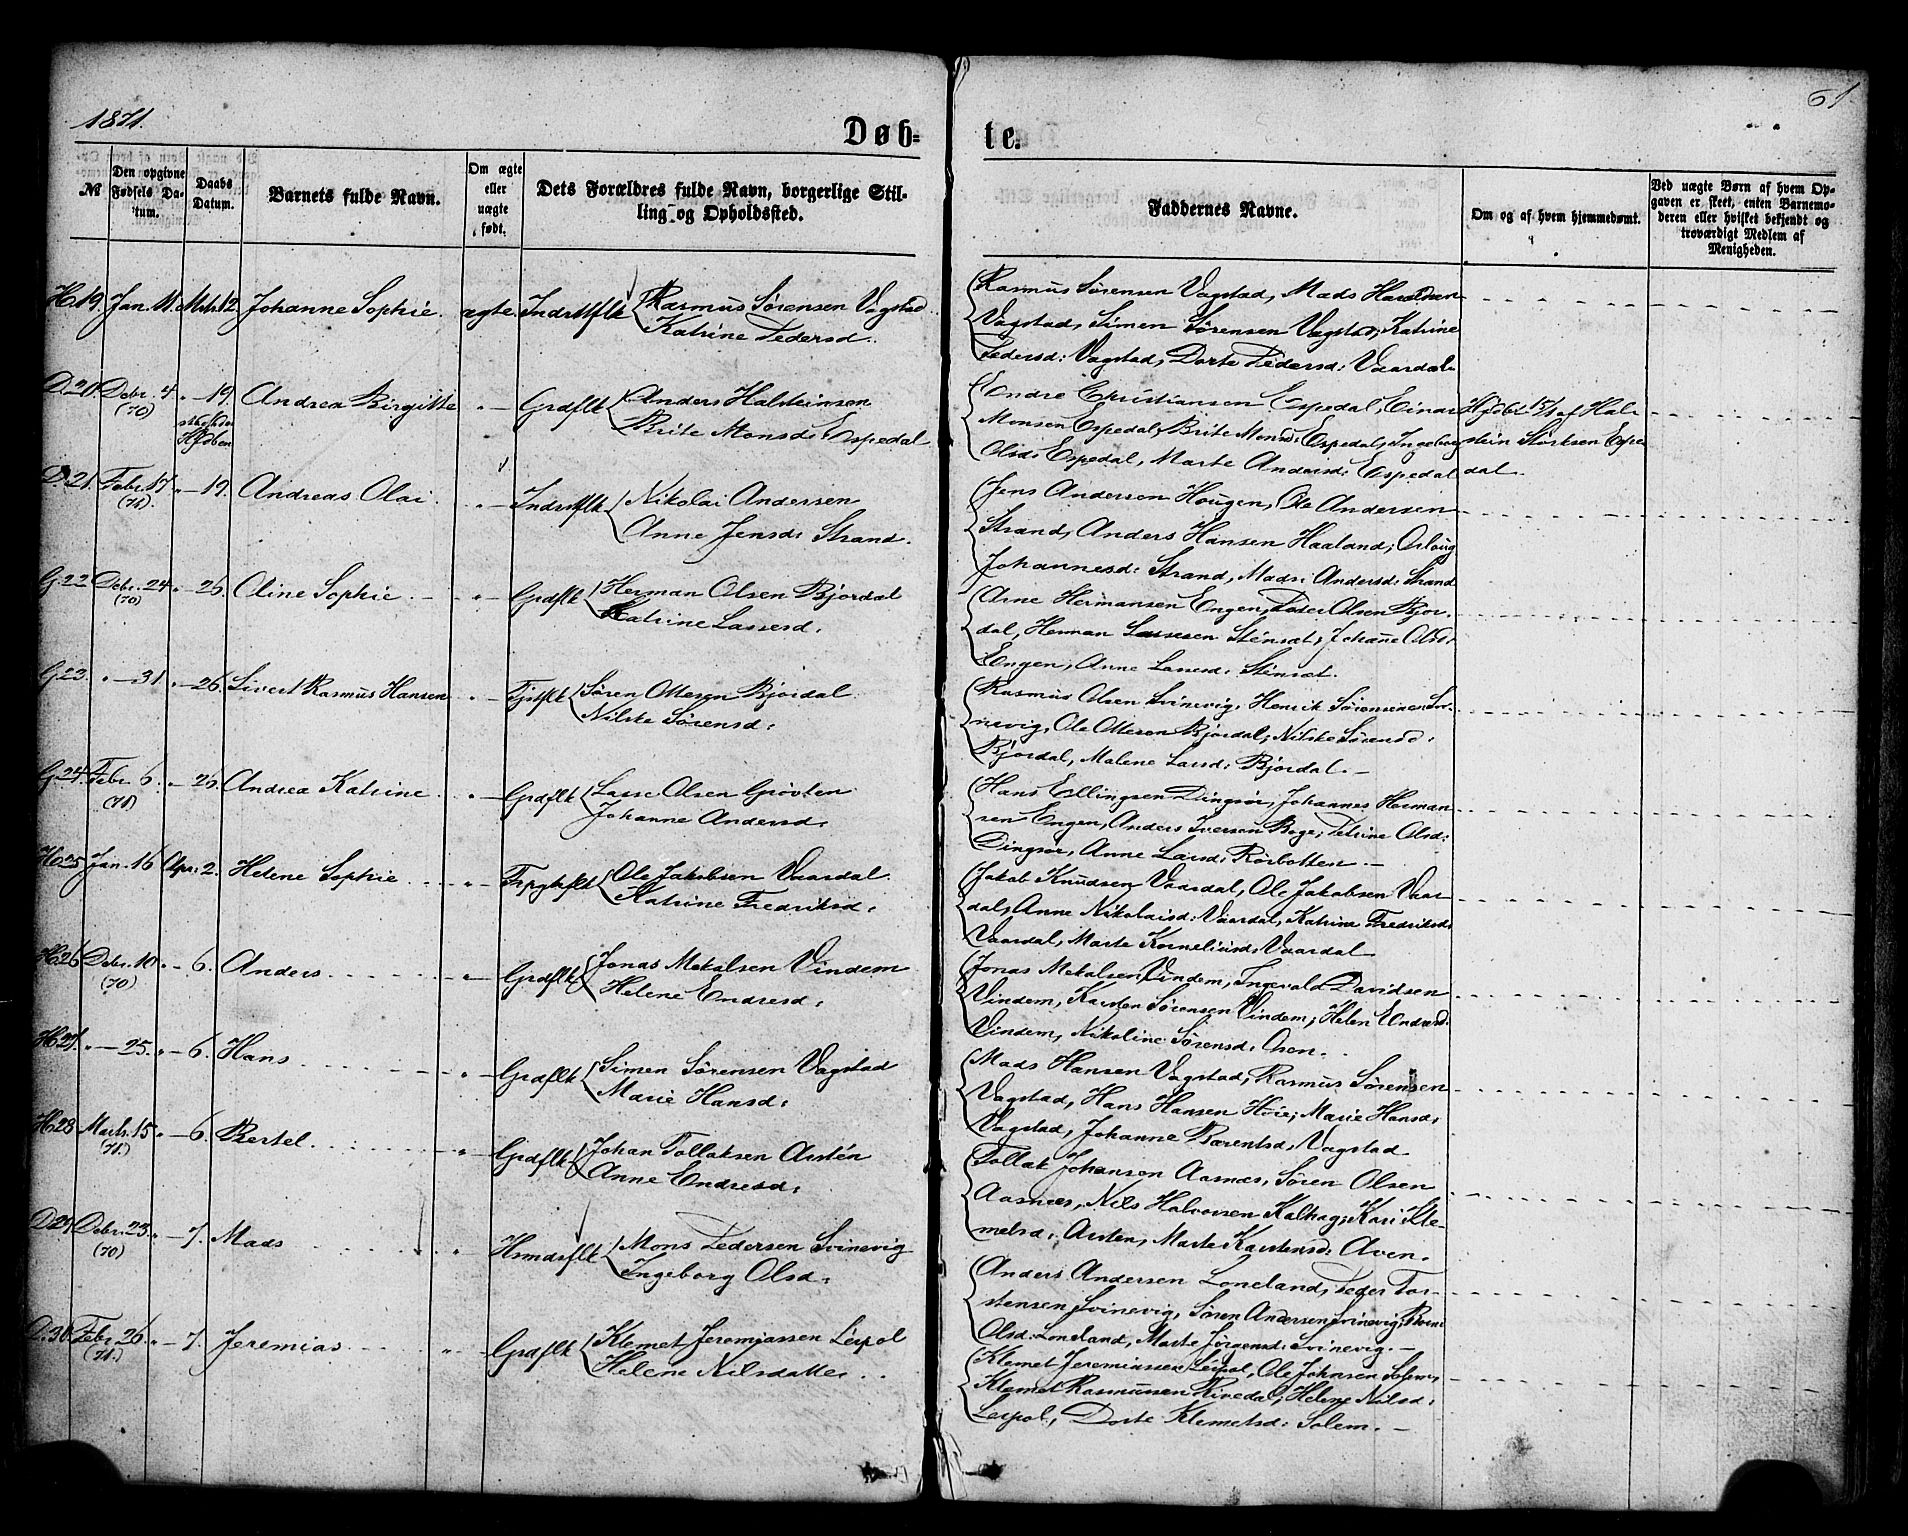 1871.
Døb-
te.
61
№
Den opgivne Fødsels Datum.
Daabs Datum.
Barnets fulde Navn.
Om ægte eller uægte født.
Dets Forældres fulde Navn, borgerlige Stilling og Opholdssted.
Faddernes Navne.
Om og af hvem hjemmedøbt.
Ved uægte Børn af hvem Opgaven er skeet, enten Barnemoderen eller hvilket bekjendt og troværdigt Medlem af Menigheden.
H. 19. Jan. 11. Mrts. 12. Johanne Sophie. ægte. Indrstflk
Rasmus Sørensen Vagstad
Katrine Pedersd.
Rasmus Sørensen Vagstad, Mads Haraldsen
Vagstad, Simen Sørensen Vagstad, Katrine
Pedersd: Vagstad, Dorte Pedersd: Vaardal
D. 20. Debr. 4 (70) " - 19. Andrea Birgitte " Grdflk
Hjdben
Anders Halsteinsen
Brite Monsd: Espedal
Endre Christiansen Espedal, Einar
Monsen Espedal, Brite Monsd: Espedal, Ingeborg
Olsd: Espedal, Marte Andersd: Espedal
Hjdbt 15/1 af Hal-
stein Størksen Espe
dal.
D. 21. Febr. 17 (71). " - 19. Andreas Olai. " Indrstflk
Nikolai Andersen
Anne Jensd: Strand.
Jens Andersen Hougen, Ole Andersen
Strand, Anders Hansen Haaland, Oslaug
Johannesd: Strand, Mads: Andersd: Strand
G. 22 Debr. 24 (70) " - 26. Oline Sophie. " Grdflk
Herman Olsen Bjordal
Katrine Lassesd.
Arne Hermansen Engen, Peder Olsen Bjor-
dal, Herman Lassesen Stensæt, Johane Olsd:
Engen, Anne Lassd: Stensæt.
G. 23. " - 31. " - 26. Sivert Rasmus Hansen "
Søren Ottesen Bjordal.
Nilske Sørensd:
Rasmus Olsen Svinevig, Henrik Sørensen Svi-
nevig, Ole Ottesen Bjordal, Nilske Sørensd:
Bjordal, Malene Larsd: Bjordal.
G. 24. Febr. 6. (71) " - 26. Andrea Katrine. " Grdflk
Lasse Olsen Grøvten
Johanne Andersd.
Hans Ellingsen Dingsør, Johannes Herman-
sen Engen, Anders Iversen Bøge, Petrine Olsd:
Dingsør, Anne Larsd: Rørbotten.
H. 25 Jan. 16 Apr. 2. Helene Sophie. "
Ole Jakobsen Vaardal.
Katrine Fredriksd.
Jakob Knudsen Vaardal, Ole Jakobsen Vaar-
dal, Anne Nikolaisd: Vaardal, Katrine Fredriksd:
Vaardal, Marte Korneliusd: Vaardal
H. 26 Debr. 10 (70) " - 6. Anders. " Grdflk
Jonas Mekalsen Vindem
Helene Endresd.
Jonas Mekalsen Vindem, Ingevald Davidsen
Vindem, Karsten Sørensen Vindem, Helen Endresd:
Vindem, Nikoline Sørensd: Osen.
H. 27. " - 25. " - 6. Hans. " Grdflk
Simen Sørensen Vagstad
Marie Hansd:
Mads Hansen Vagstad, Rasmus Sørensen
Vagstad, Hans Hansen Høie, Marie Hansd:
Vagstad, Johanne Bærentsd, Vagstad
H. 28 Mrts. 15 (71.) " - 6. Bertel. " Grdflk
Johan Tollaksen Austén
Anne Endresd:
Tollak Johansen Aasnæs, Søren Olsen
Aasnæs, Nils Halvorsen Kalhag, Kari Kle-
metsd: Austen, Marte Karstensd: Aven.
D. 29 Debr. 23. (70) " - 7. Mads " Hsmdsflk
Mons Pedersen Svinevig
Ingeborg Olsd:
Anders Andersen Loneland, Peder Tor-
stensen Svinevig, Søren Andersen Svinevig,
Olsd: Loneland, Marte Jørgensd: Svinevig.
D. 30. Febr. 26. (71.) " - 7. Jeremias " Grdflk
Klemet Jeremiassen Leipol
Helene Nilsdatter.
Klemet Jeremiassen Leipol, Ole Johnsen Solem,
Klemet Rasmussen Rivedal, Helene Nilsd:
Leipol, Dorte Klemetsd: Solem.